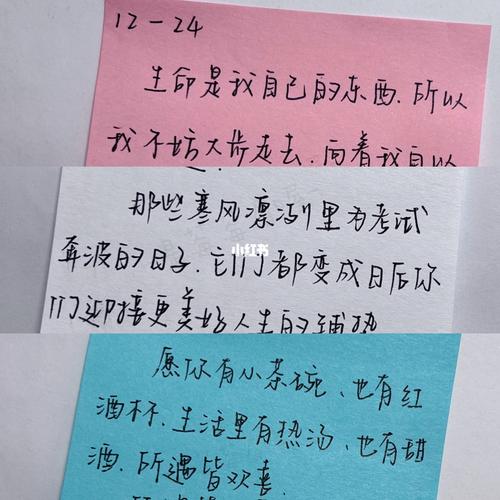 12-24
生命是我自己的东西.所以
我不妨大步走去.向着我自以
那些寒风凛冽里为考试
小红书
奔波的日子.它们都变成日后你
们迎接更美好人生的铺垫
愿你有小茶碗、也有红
酒杯.生活里有热汤、也有甜
酒.所遇皆欢喜.